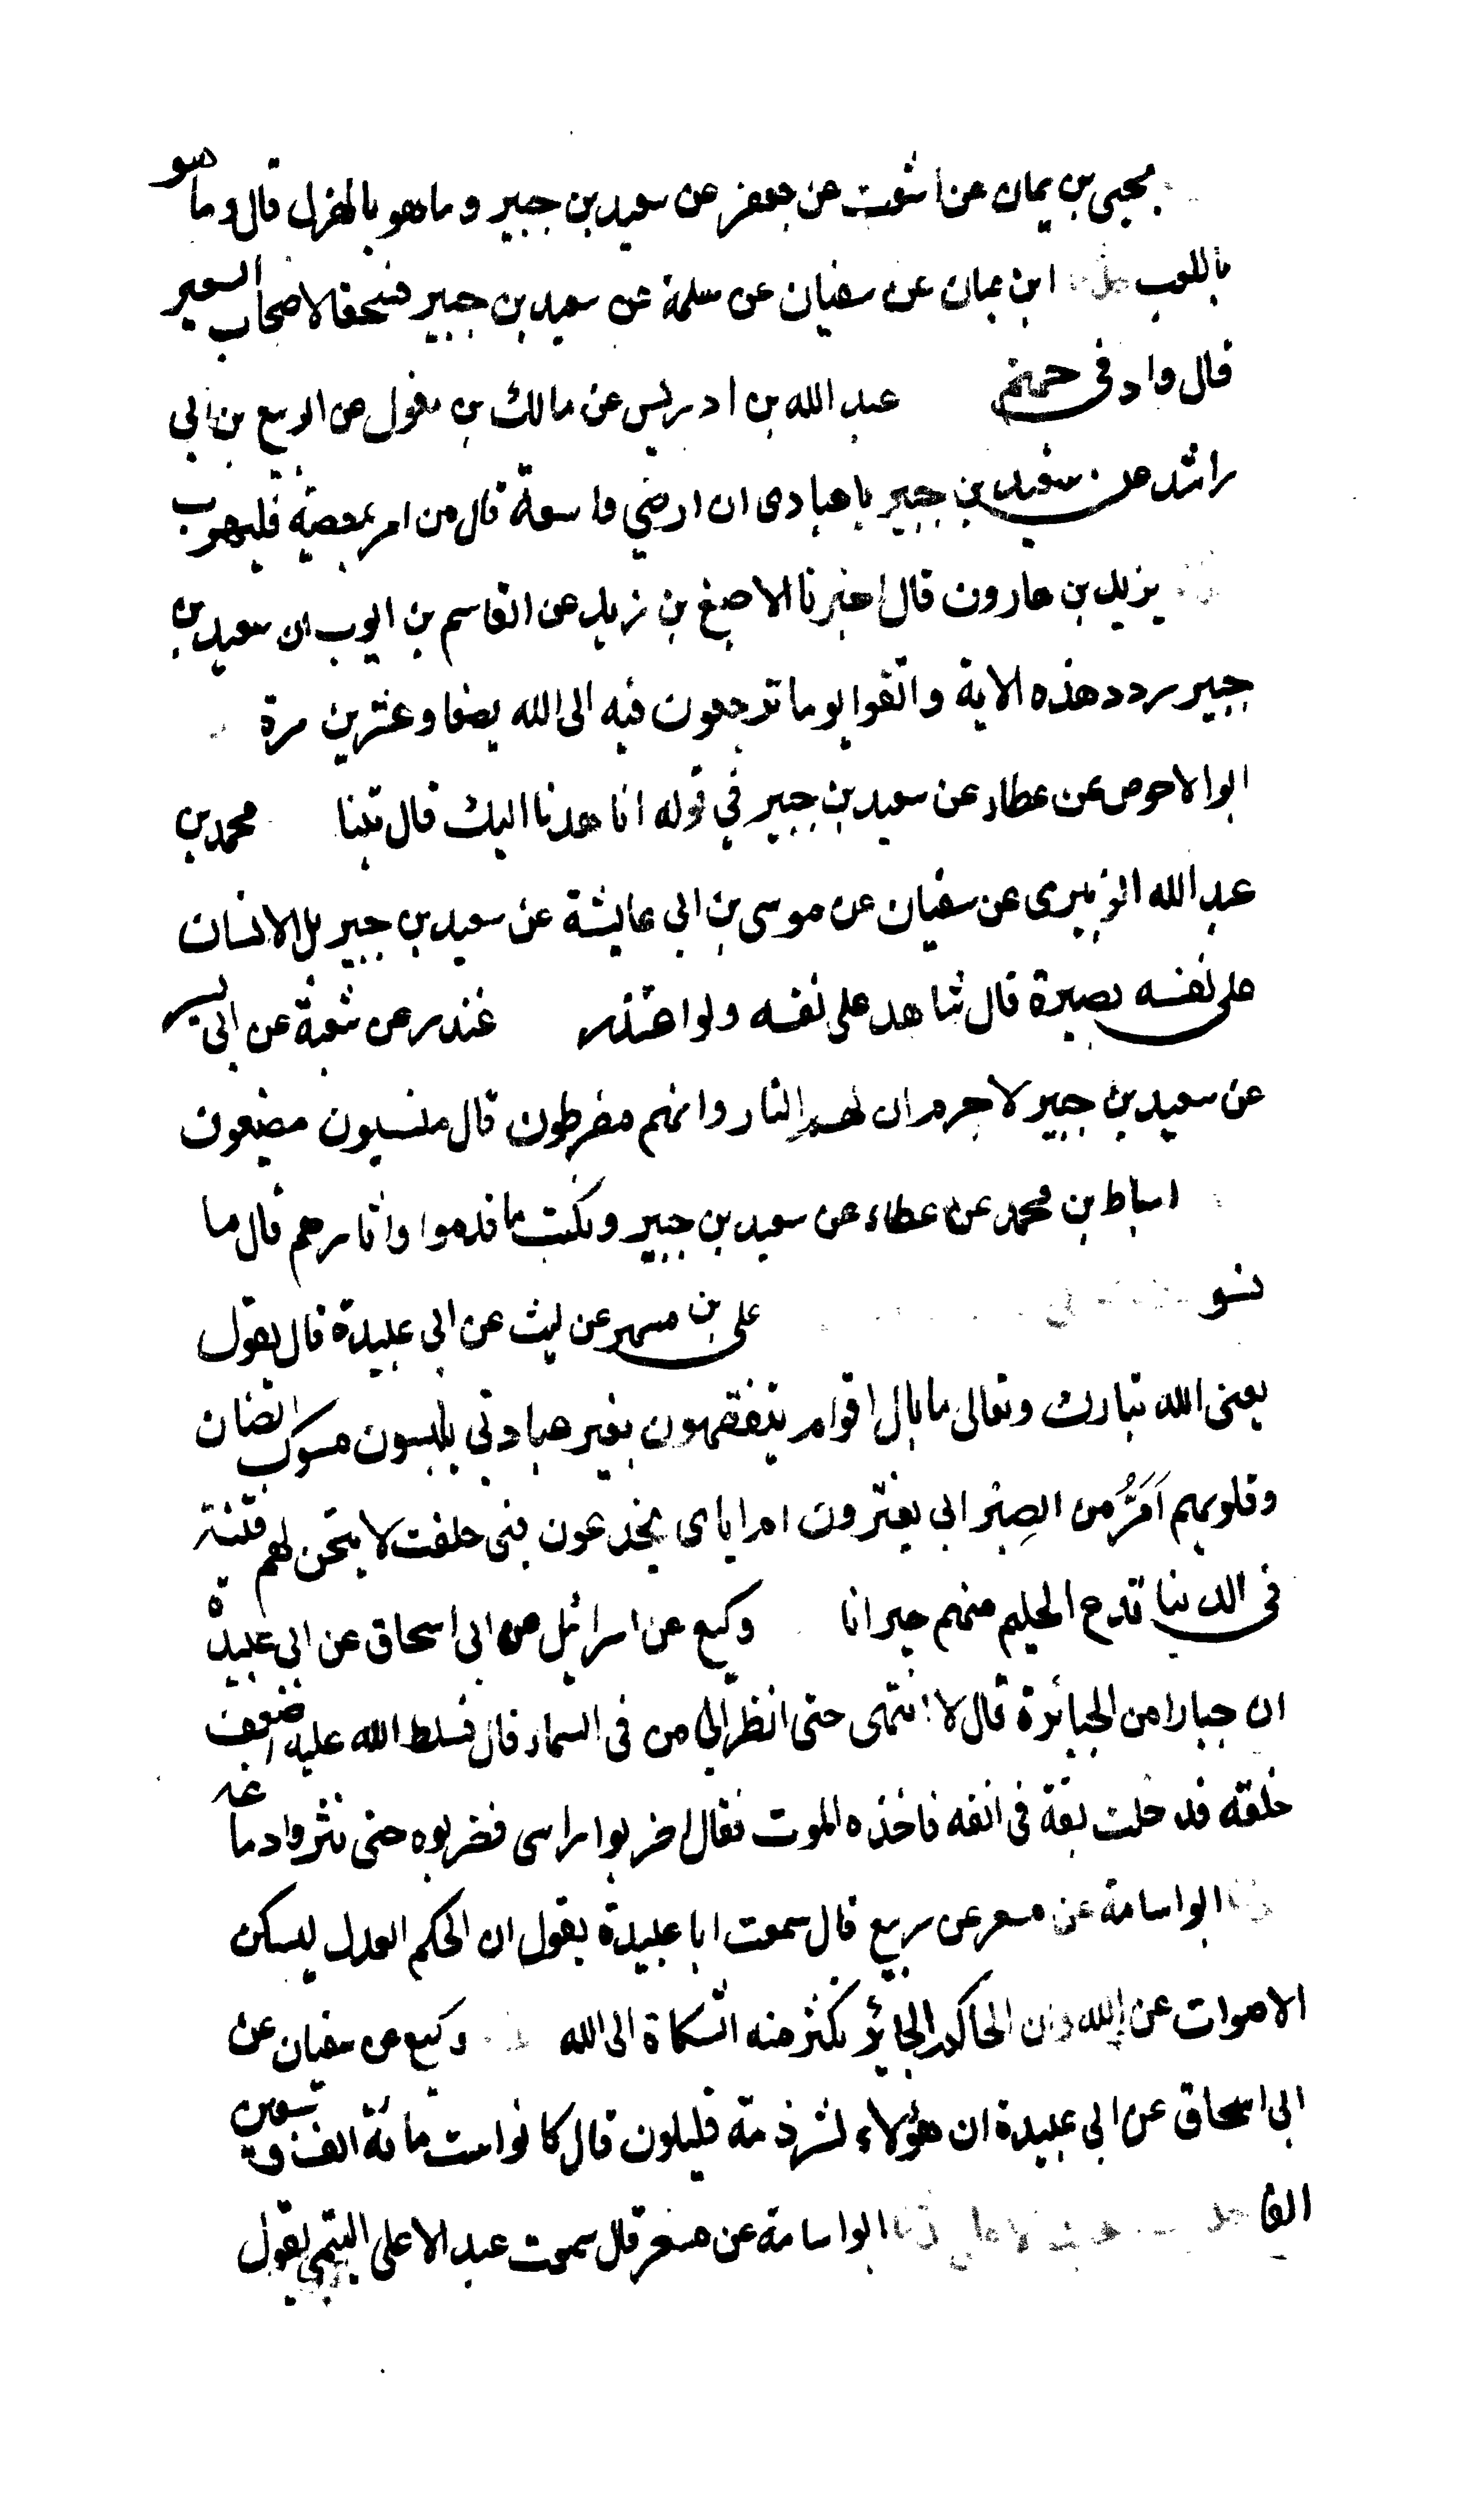 يحيى بن يمان عن اشعث عن جعفر عن سعيد بن جبير وما هو بالهزل قال وما هو
باللعب ابن يمان عن سفيان عن سلمة عن سعيد بن جبير فسحقا لاصحاب السعير
قال واد في جهنم عبد الله بن ادريس عن مالك بن مغول عن الربيع بن ابي
راشد عن سعيد بن جبير يا عبادى ان ارضي واسعة قال من امر بمعصية فليهرب
يزيد بن هارون قال اخبرنا الاصبغ بن زيد عن القاسم بن ايوب ان سعيد بن
جبير ردد هذه الاية واتقوا يوما ترجعون فيه الى الله بضعا وعشرين مرة
ابوا لاحوص عن عطاء عن سعيد بن جبير في قوله انا هدنا اليك قال تبنا محمد بن
عبد الله الزبيرى عن سفيان عن موسى بن ابي عايشة عن سعيد بن جبير بل الانسان
على نفسه بصيرة قال شاهد على نفسه ولو اعتذر غندر عن شعبة عن ابي بسر
عن سعيد بن جبير لا جرم ان لهم النار وانهم مفرطون قال منسيون مضيعون
اسباط بن محمد عن عطاء عن سعيد بن جبير ونكتب ما قدموا واثارهم قال ما
نسو علي بن مسهر عن ليث عن ابي عبيدة قال يقول
يعنى الله تبارك وتعالى ما بال اقوام يتفقهون بغير عبادتي يلبسون مسوك الضان
وقلوبهم اَمَرُّ من الصِبْر ابي يغترون ام اياى يخدعون فبي حلفت لا يتحن لهم فتنة
في الدنيا تدع الحليم منهم حيرانا وكيع عن اسرائيل عن ابي اسحاق عن ابي عبيدة
ان جبارا من الجبائرة قال لا انتهى حتى انظر الى من في السماء قال فسلط الله عليه اضعف
خلقه فدخلت بقة في انفه فاخذه الموت فقال اضربوا راسى فضربوه حتى نثروا دماغه
ابواسامة عن مسعر عن ربيع قال سمعت ابا عبيدة يقول ان الحكم العدل ليسكن
الاصوات عن الله وان الحاكم الجائر تكثر منه الشكاة الى الله وكيع عن سفيان عن
ابي اسحاق عن ابي عبيدة ان هؤلاء لشرذمة قليلون قال كانوا ست مائة الف وسبعين
الفا ابواسامة عن مسعر قال سمعت عبد الاعلى التيمي يقول